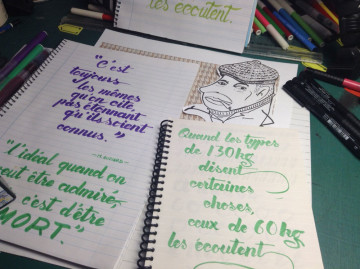 les écoutent.
"C'est
toujours
les mêmes
qu'on cite,
pas étonnant
qu'ils soient
connus."
"L'idéal quand on
veut être admiré,
c'est d'être
MORT."
Quand les types
de 130kg
disent
certaines
choses,
ceux de 60kg
les écoutent